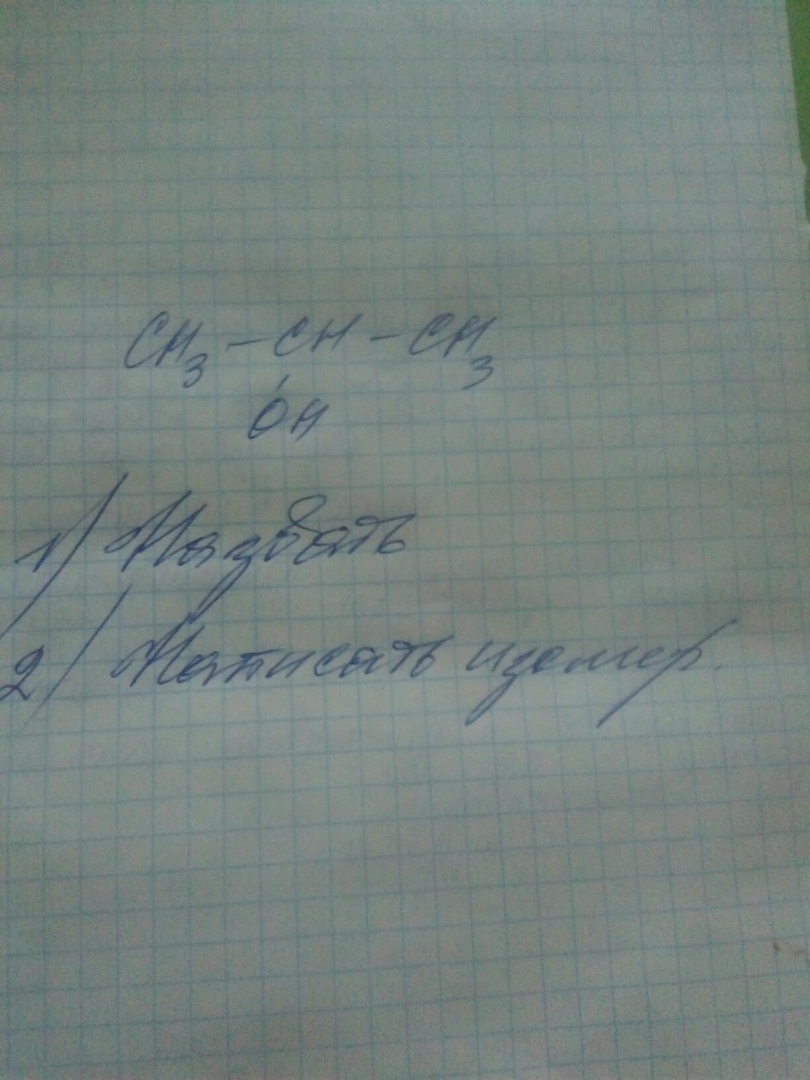 CH3 – CH – CH3
OH
1) Назвать
2) Написать изомер.